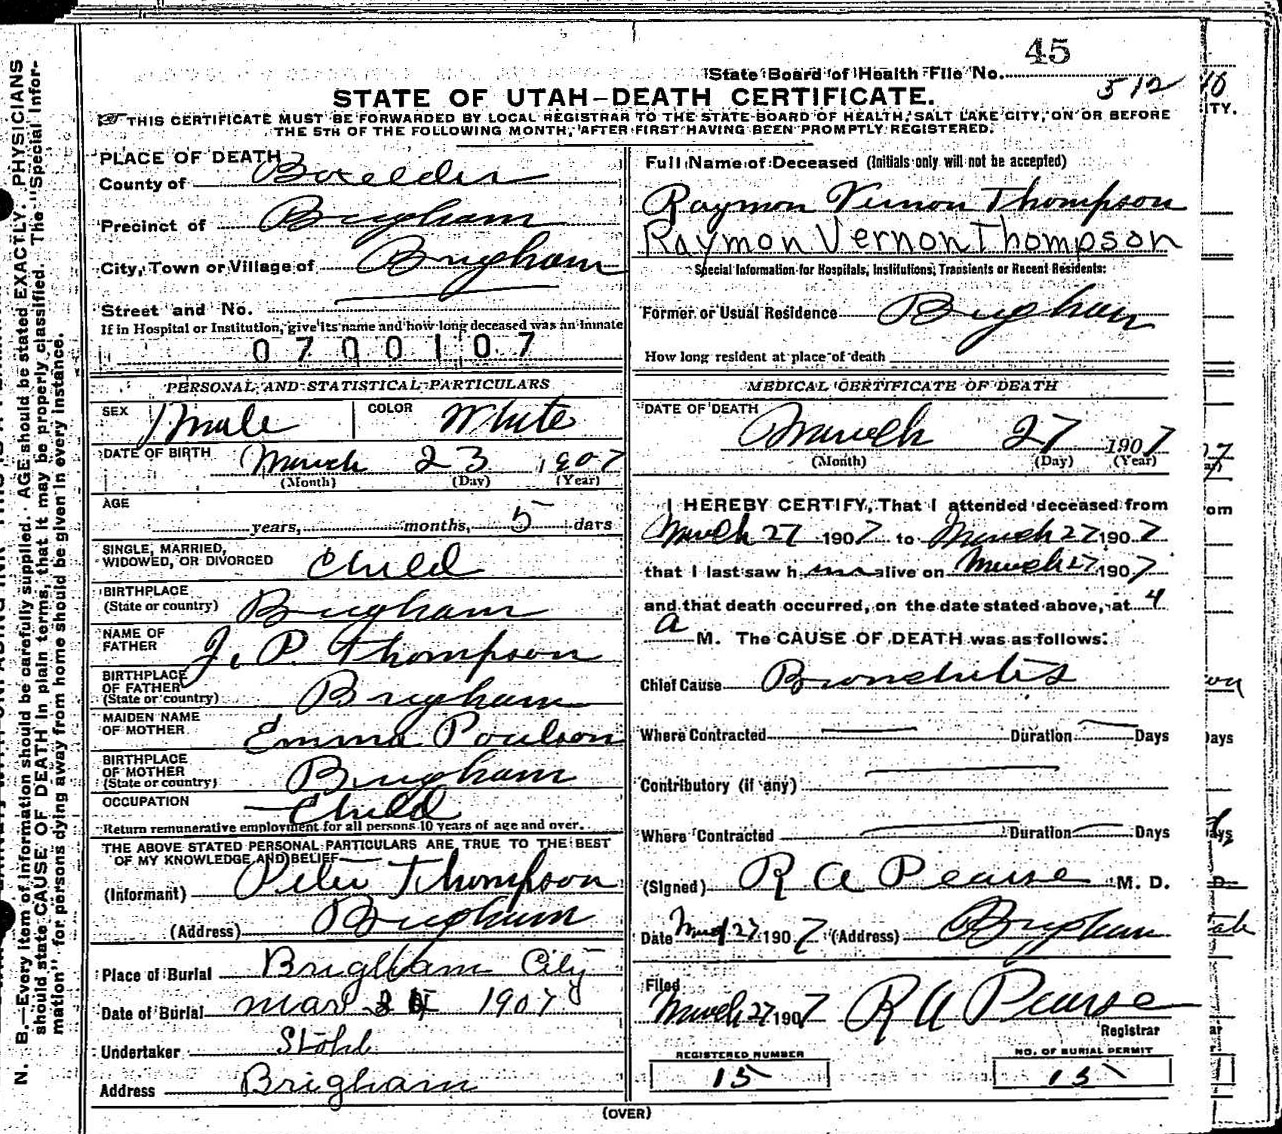 45
State Board of Health File No.
512
STATE OF UTAH—DEATH CERTIFICATE.
THIS CERTIFICATE MUST BE FORWARDED BY LOCAL REGISTRAR TO THE STATE BOARD OF HEALTH, SALT LAKE CITY, ON OR BEFORE
THE 5TH OF THE FOLLOWING MONTH, AFTER FIRST HAVING BEEN PROMPTLY REGISTERED.
PLACE OF DEATH
County of Boxelder
Precinct of Brigham
City, Town or Village of Brigham
Street and No.
If in Hospital or Institution, give its name and how long deceased was an inmate
0700107
PERSONAL AND STATISTICAL PARTICULARS
SEX Male COLOR White
DATE OF BIRTH March 23 1907
(Month) (Day) (Year)
AGE
years, months, 5 days
SINGLE, MARRIED,
WIDOWED, OR DIVORCED Child
BIRTHPLACE
(State or country) Brigham
NAME OF
FATHER J. P. Thompson
BIRTHPLACE
OF FATHER
(State or country) Brigham
MAIDEN NAME
OF MOTHER Emma Poulson
BIRTHPLACE
OF MOTHER
(State or country) Brigham
OCCUPATION Child
Return remunerative employment for all persons 10 years of age and over.
THE ABOVE STATED PERSONAL PARTICULARS ARE TRUE TO THE BEST
OF MY KNOWLEDGE AND BELIEF
(Informant) Peter Thompson
(Address) Brigham
Place of Burial Brigham City
Date of Burial Mar 1907
Undertaker Stohl
Address Brigham
Full Name of Deceased (Initials only will not be accepted)
Raymon Vernon Thompson
Raymon Vernon Thompson
Special Information for Hospitals, Institutions, Transients or Recent Residents:
Former or Usual Residence Brigham
How long resident at place of death
MEDICAL CERTIFICATE OF DEATH
DATE OF DEATH March 27 1907
(Month) (Day) (Year)
I HEREBY CERTIFY, That I attended deceased from
March 27 1907 to March 27 1907
that I last saw h im alive on March 27 1907
and that death occurred, on the date stated above, at 4
a M. The CAUSE OF DEATH was as follows:
Chief Cause Bronchitis
Where Contracted Duration Days
Contributory (if any)
Where Contracted Duration Days
(Signed) R A Pearse M. D.
Date Mar 27 1907 (Address) Brigham
Filed
March 27 1907 R A Pearse
Registrar
REGISTERED NUMBER
15
NO. OF BURIAL PERMIT
15
(OVER)
N. B.—Every item of information should be carefully supplied. AGE should be stated EXACTLY. PHYSICIANS
should state CAUSE OF DEATH in plain terms, that it may be properly classified. The "Special Infor-
mation" for persons dying away from home should be given in every instance.